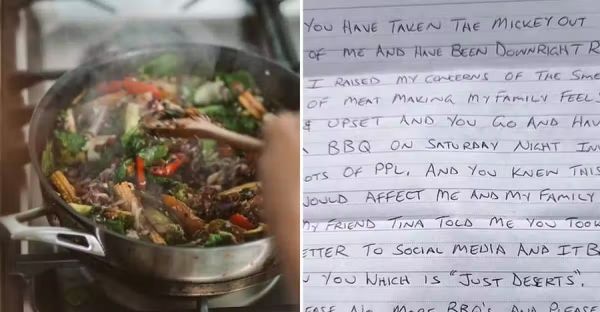 YOU HAVE TAKEN THE MICKEY OUT
OF ME AND HAVE BEEN DOWNRIGHT R
I RAISED MY CONCERNS OF THE SME
OF MEAT MAKING MY FAMILY FEEL S
& UPSET AND YOU GO AND HAV
BBQ ON SATURDAY NIGHT INV
OTS OF PPL, AND YOU KNEW THIS
OULD AFFECT ME AND MY FAMILY
MY FRIEND TINA TOLD ME YOU TOOK
ETTER TO SOCIAL MEDIA AND IT B
YOU WHICH IS "JUST DESERTS".
EASE NO MORE BBQ'S AND PLEASE